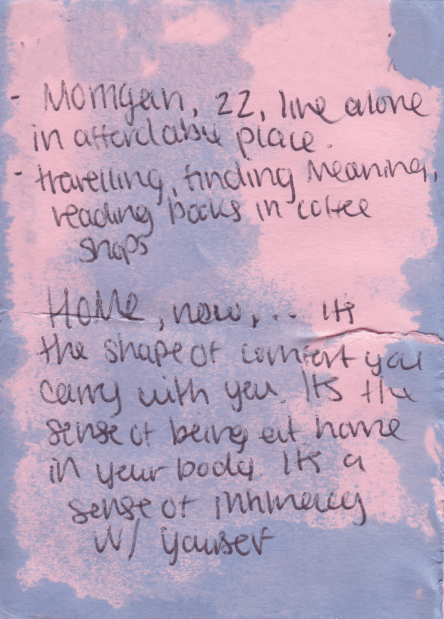 - Momgen, 22, live alone
in affordable place.
- travelling, finding meaning,
reading books in coffee
shops
Home, now, ... its
the shape of comfort you
carry with you. Its the
sense of being at home
in your body. Its a
sense of intimacy
w/ yourself